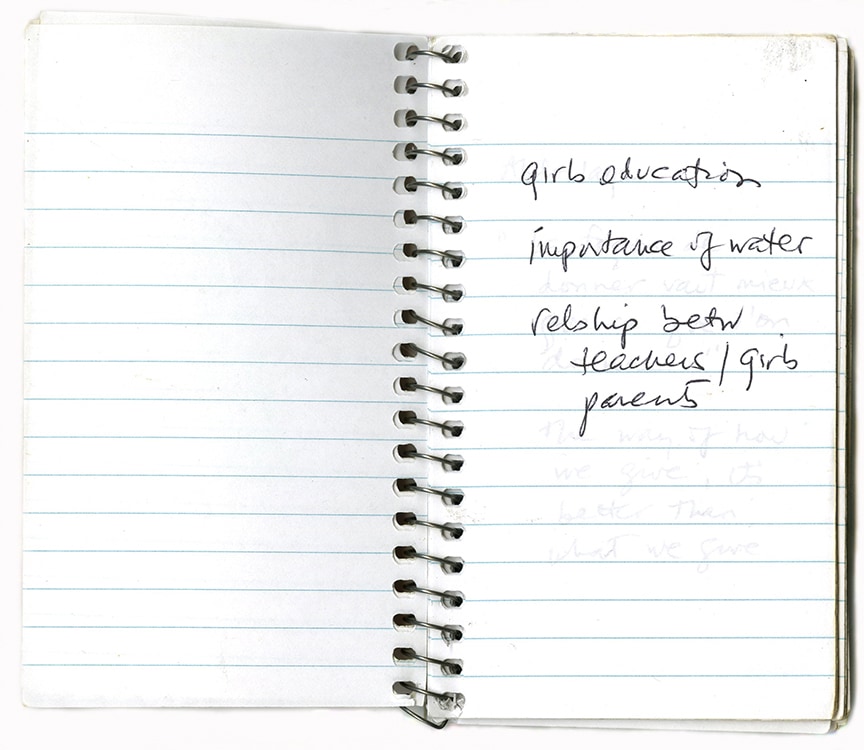 girls education
importance of water
donner vaut mieux
relship betw
teachers / girls
parents
the way of how
we give, its
better than
what we give